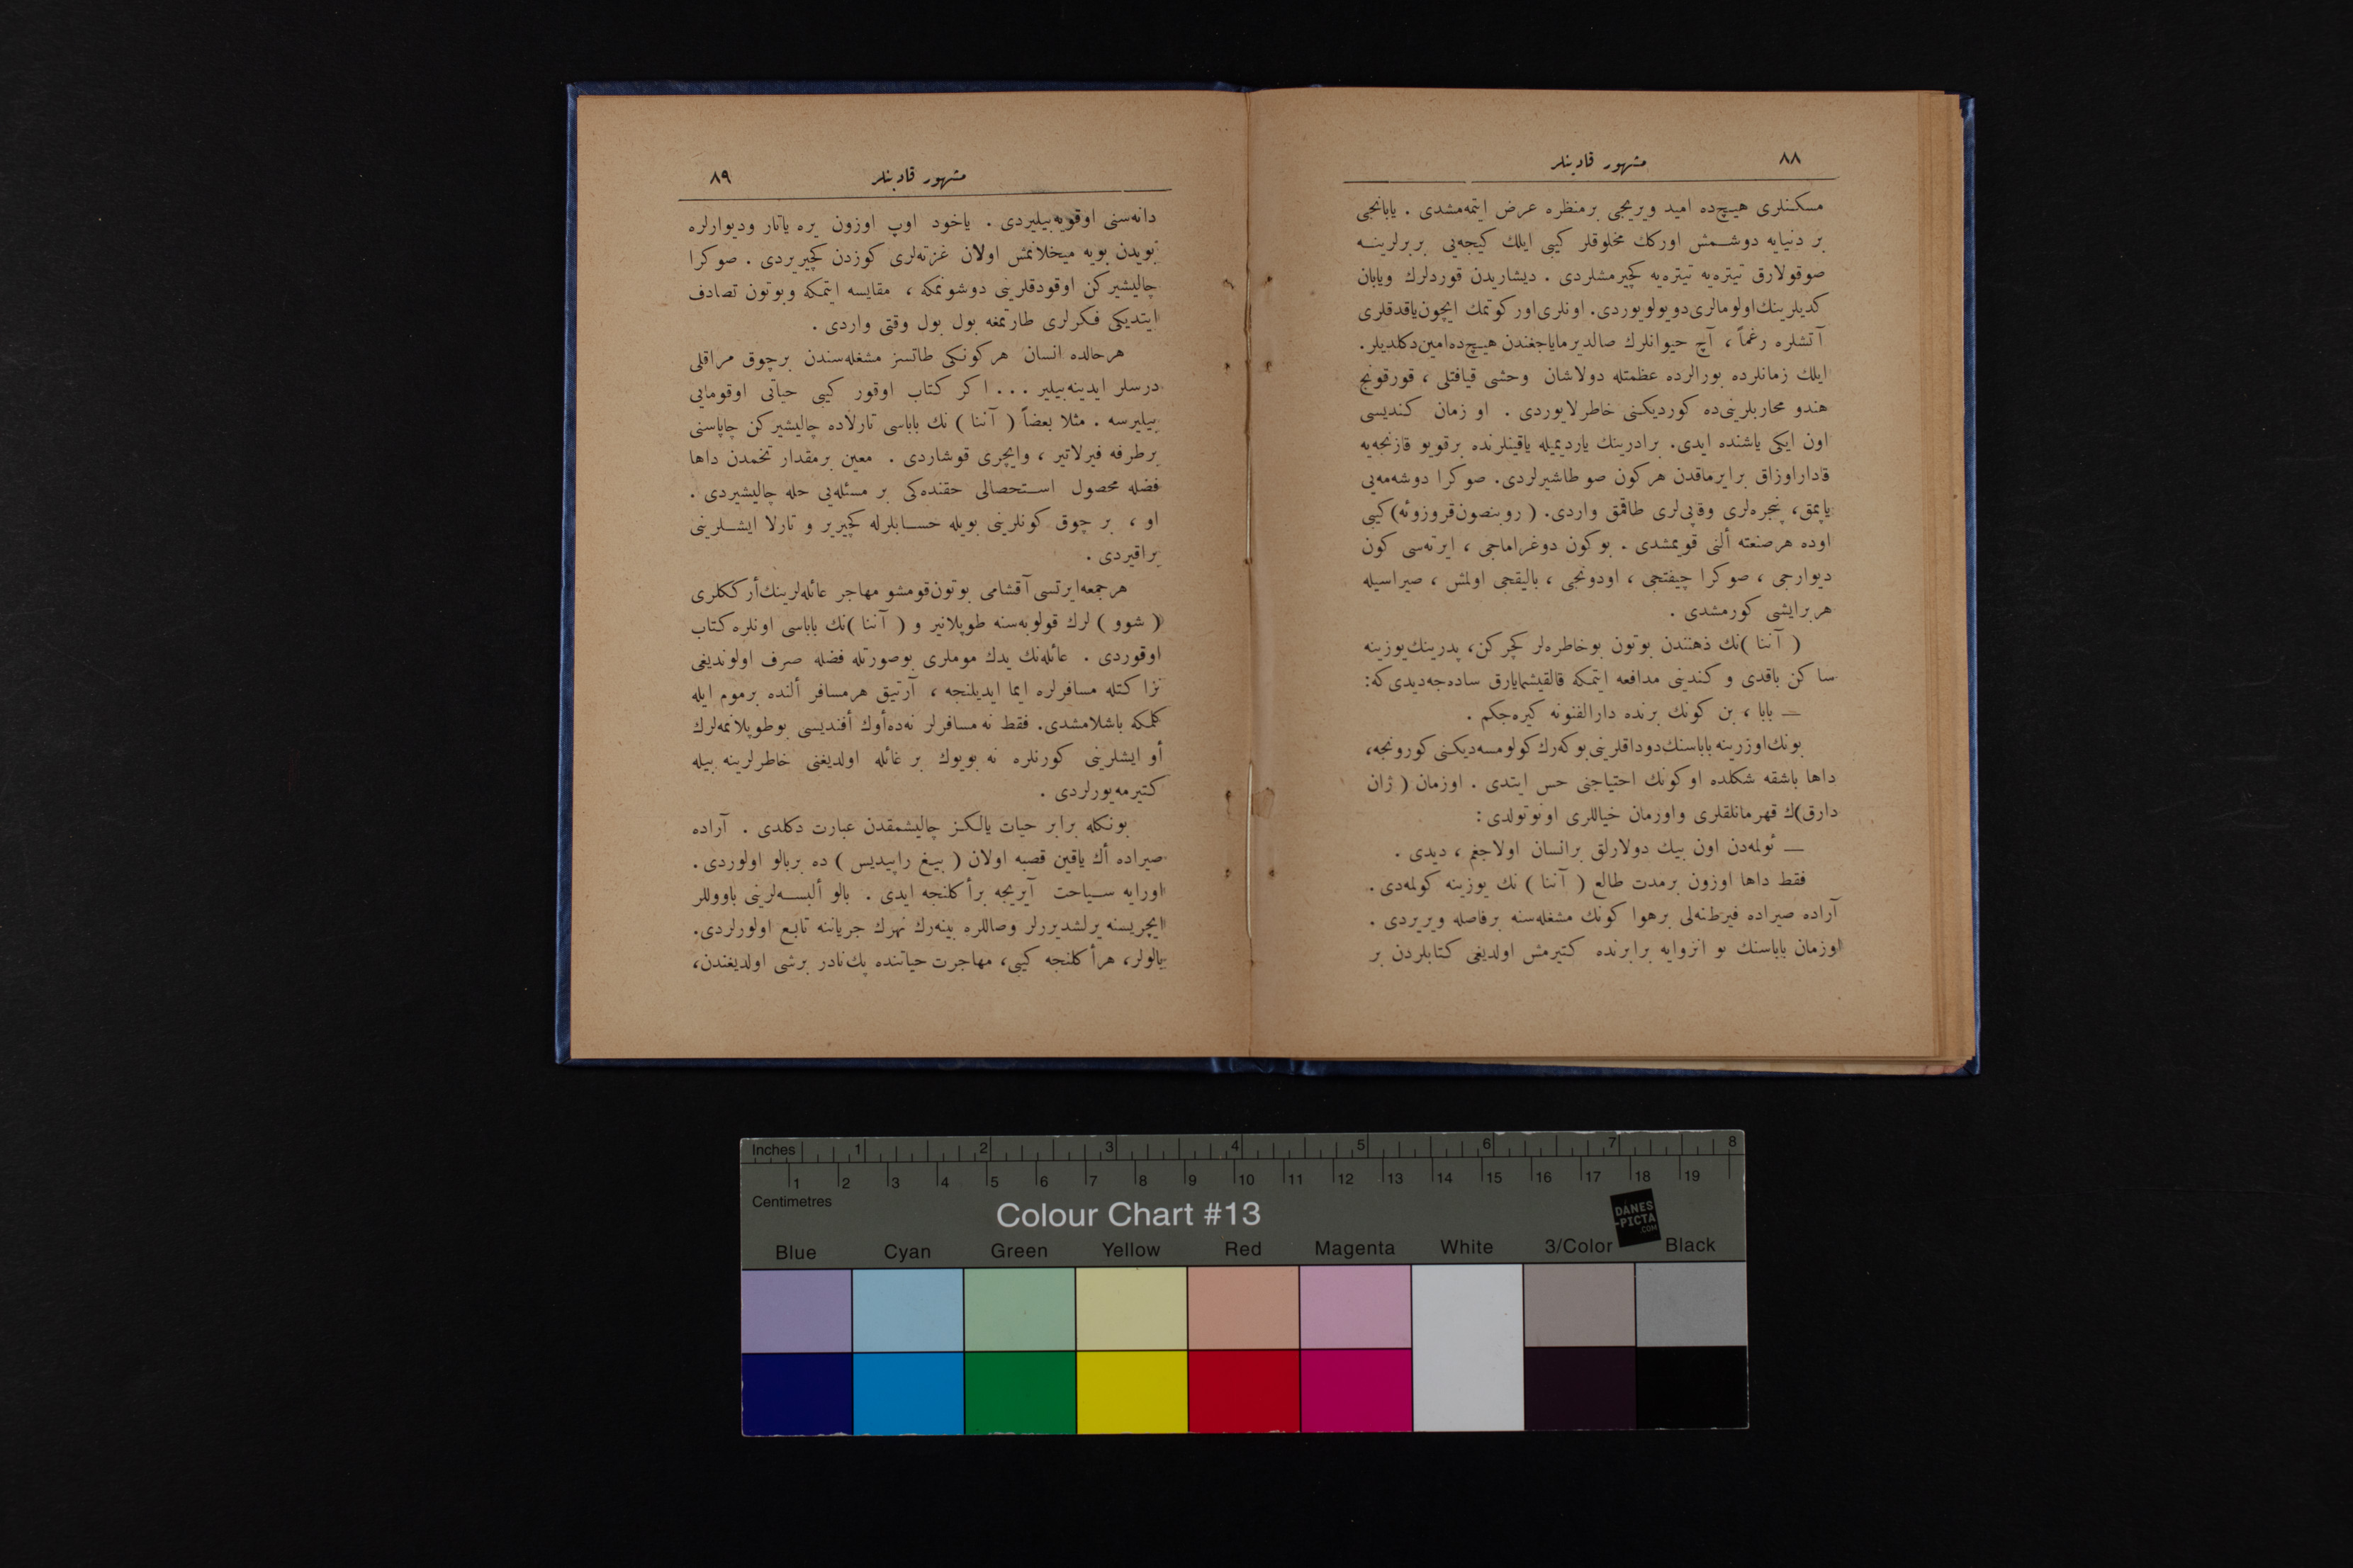 ٨٨
مشهور قادینلر
مسکنلری هیچ‌ده امید ویریجی برمنظره عرض ایتمه‌مشدی . یابانجی
بر دنیایه دوشمش اورکك مخلوقلر کیبی ایلك کیجه‌یی بربرلرینه
صوقولارق تیتره‌یه تیتره‌یه کچیرمشلردی . دیشاریدن قوردلرك ویابان
کدیلرینك اولومالری دویولویوردی. اونلری اورکوتمك ایچون یاقدقلری
آتشلره رغماً ، آچ حیوانلرك صالدیرمایاجغندن هیچ‌ده امین دکلدیلر.
ایلك زمانلرده بورالرده عظمتله دولاشان وحشی قیافتلی ، قورقونج
هندو محاربلرینی‌ده کوردیکنی خاطرلایوردی . او زمان کندیسی
اون ایکی یاشنده ایدی. برادرینك یاردیمیله یاقینلرنده برقویو قازنجه‌یه
قاداراوزاق برایرماقدن هرکون صو طاشیرلردی. صوکرا دوشه‌مه‌یی
یاپمق، پنجره‌لری وقاپی‌لری طاقمق واردی. ( روبنصون قروزوئه) کیبی
اوده هرصنعته ألنی قویمشدی . بوکون دوغراماجی ، ایرته‌سی کون
دیوارجی ، صوکرا چیفتجی ، اودونجی ، بالیقجی اولمش ، صیراسیله
هربرایشی کورمشدی .
( آننا )نك ذهنندن بوتون بوخاطره‌لر کچرکن، پدرینك یوزینه
ساکن باقدی و کندینی مدافعه ایتمکه قالقیشمایارق ساده‌جه دیدی که:
— بابا ، بن کونك برنده دارالفنونه کیره‌جکم .
بونك اوزرینه باباسنك دوداقلرینی بوکه‌رك کولومسه‌دیکنی کورونجه،
داها باشقه شکلده اوکونك احتیاجنی حس ایتدی . اوزمان ( ژان
دارق)ك قهرمانلقلری واورمان خیاللری اونوتولدی :
— ئولمه‌دن اون بیك دولارلق برانسان اولاجغم ، دیدی .
فقط داها اوزون برمدت طالع ( آننا ) نك یوزینه کولمه‌دی .
آراده صیراده فیرطنه‌لی برهوا کونك مشغله‌سنه برفاصله ویریردی .
اوزمان باباسنك بو انزوایه برابرنده کتیرمش اولدیغی کتابلردن بر
مشهور قادینلر
٨٩
دانه‌سنی اوقویه‌بیلیردی . یاخود اوپ اوزون یره یاتار ودیوارلره
بویدن بویه میخلانمش اولان غزته‌لری کوزدن کچیریردی . صوکرا
چالیشیرکن اوقودقلرینی دوشونمکه ، مقایسه ایتمکه وبوتون تصادف
ایتدیکی فکرلری طارتمغه بول بول وقتی واردی .
هرحالده انسان هرکونکی طاتسز مشغله‌سندن برچوق مراقلی
درسلر ایدینه‌بیلیر . . . اکر کتاب اوقور کیبی حیاتی اوقومایی
بیلیرسه . مثلا بعضاً ( آننا ) نك باباسی تارلاده چالیشیرکن چاپاسنی
برطرفه فیرلاتیر ، وایچری قوشاردی . معین برمقدار تخمدن داها
فضله محصول استحصالی حقنده‌کی بر مسئله‌یی حله چالیشیردی .
او ، بر چوق کونلرینی بویله حسابلرله کچیریر و تارلا ایشلرینی
براقیردی .
هرجمعه‌ایرتسی آقشامی بوتون قومشو مهاجر عائله‌لرینك أرککلری
( شوو ) لرك قولوبه‌سنه طوپلانیر و ( آننا )نك باباسی اونلره کتاب
اوقوردی . عائله‌نك یدك موملری بوصورتله فضله صرف اولوندیغی
نزاکتله مسافرلره ایما ایدیلنجه ، آرتیق هرمسافر ألنده برموم ایله
کلمکه باشلامشدی. فقط نه مسافرلر نه‌ده أوك أفندیسی بوطوپلانمه‌لرك
أو ایشلرینی کورنلره نه بویوك بر غائله اولدیغنی خاطرلرینه بیله
کتیرمه‌یورلردی .
بونکله برابر حیات یالکز چالیشمقدن عبارت دکلدی . آراده
صیراده أك یاقین قصبه اولان ( بیغ راپیدیس ) ده بربالو اولوردی.
اورایه سیاحت آیریجه برأکلنجه ایدی . بالو ألبسه‌لرینی باووللر
ایچریسنه یرلشدیررلر وصاللره بینه‌رك نهرك جریاننه تابع اولورلردی.
بالولر، هرأکلنجه کیبی، مهاجرت حیاتنده پك‌نادر برشی اولدیغندن،
Inches 1 2 3 4 5 6 7 8
1 2 3 4 5 6 7 8 9 10 11 12 13 14 15 16 17 18 19
Centimetres
Colour Chart #13
DANES
-PICTA
.COM
Blue Cyan Green Yellow Red Magenta White 3/Color Black